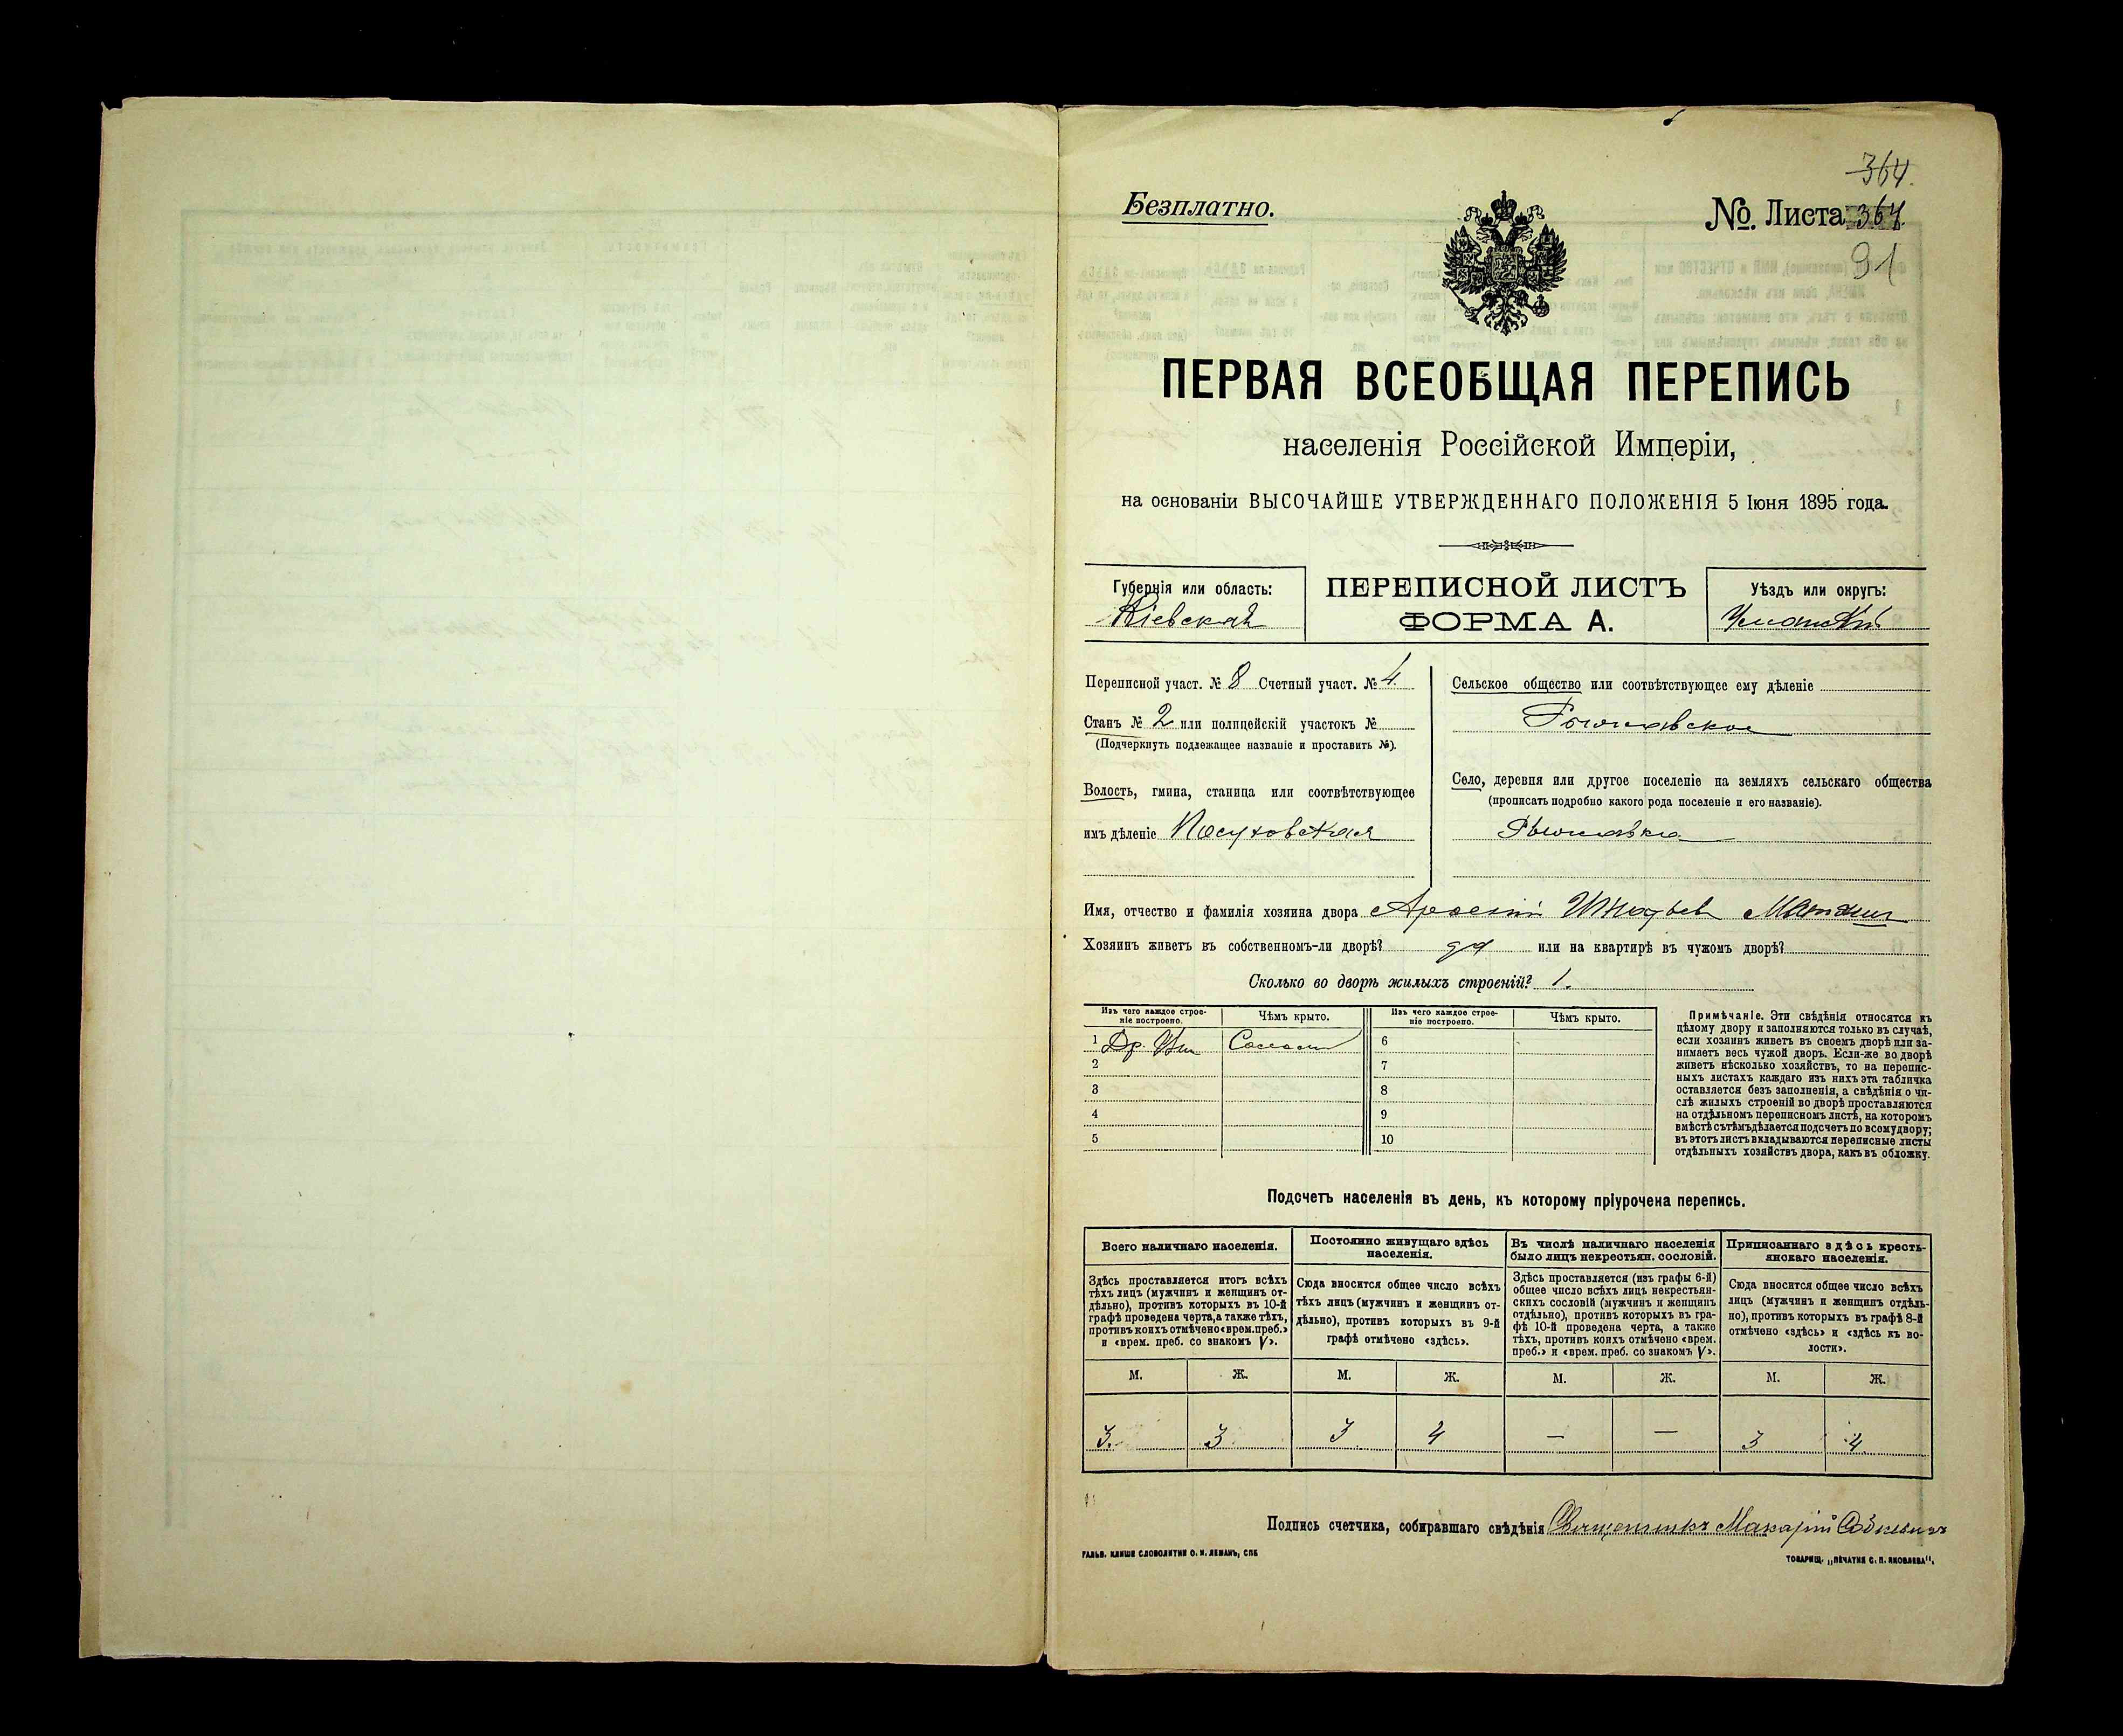 364.
Безплатно.
№. Листа 364.
91
ПЕРВАЯ ВСЕОБЩАЯ ПЕРЕПИСЬ
населенія Россійской Имперіи,
на основаніи ВЫСОЧАЙШЕ УТВЕРЖДЕННАГО ПОЛОЖЕНІЯ 5 Іюня 1895 года.
Губернія или область:
Кіевская
ПЕРЕПИСНОЙ ЛИСТЪ
ФОРМА А.
Уѣздъ или округъ:
Уманскій
Переписной участ. № 8 Счетный участ. № 4.
Станъ № 2 или полицейскій участокъ №
(Подчеркнуть подлежащее названіе и проставить №).
Волость, гмина, станица или соотвѣтствующее
имъ дѣленіе
Сельское общество или соотвѣтствующее ему дѣленіе
Село, деревня или другое поселеніе на земляхъ сельскаго общества
(прописать подробно какого рода поселеніе и его названіе).
Имя, отчество и фамилія хозяина двора
Хозяинъ живетъ въ собственномъ-ли дворѣ? да или на квартирѣ въ чужомъ дворѣ?
Сколько во дворѣ жилыхъ строеній? 1.
Изъ чего каждое строе-
ніе построено.
Чѣмъ крыто.
Изъ чего каждое строе-
ніе построено.
Чѣмъ крыто.
1 Др. Соломой 6
2 7
3 8
4 9
5 10
Примѣчаніе. Эти свѣдѣнія относятся къ
цѣлому двору и заполняются только въ случаѣ,
если хозяинъ живетъ въ своемъ дворѣ или за-
нимаетъ весь чужой дворъ. Если-же во дворѣ
живетъ нѣсколько хозяйствъ, то на перепис-
ныхъ листахъ каждаго изъ нихъ эта табличка
оставляется безъ заполненія, а свѣдѣнія о чи-
слѣ жилыхъ строеній во дворѣ проставляются
на отдѣльномъ переписномъ листѣ, на которомъ
вмѣстѣ съ тѣмъ дѣлается подсчетъ по всему двору;
въ этотъ листъ вкладываются переписные листы
отдѣльныхъ хозяйствъ двора, какъ въ обложку.
Подсчетъ населенія въ день, къ которому пріурочена перепись.
Всего наличнаго населенія.
Здѣсь проставляется итогъ всѣхъ
тѣхъ лицъ (мужчинъ и женщинъ от-
дѣльно), противъ которыхъ въ 10-й
графѣ проведена черта, а также тѣхъ,
противъ коихъ отмѣчено «врем. преб.»
и «врем. преб. со знакомъ V».
Постоянно живущаго здѣсь
населенія.
Сюда вносится общее число всѣхъ
тѣхъ лицъ (мужчинъ и женщинъ от-
дѣльно), противъ которыхъ въ 9-й
графѣ отмѣчено «здѣсь».
Въ числѣ наличнаго населенія
было лицъ некрестьян. сословій.
Здѣсь проставляется (изъ графы 6-й)
общее число всѣхъ лицъ некрестьян-
скихъ сословій (мужчинъ и женщинъ
отдѣльно), противъ которыхъ въ гра-
фѣ 10-й проведена черта, а также
тѣхъ, противъ коихъ отмѣчено «врем.
преб.» и «врем. преб. со знакомъ V».
Приписаннаго здѣсь кресть-
янскаго населенія.
Сюда вносится общее число всѣхъ
лицъ (мужчинъ и женщинъ отдѣль-
но), противъ которыхъ въ графѣ 8-й
отмѣчено «здѣсь» и «здѣсь къ во-
лости».
М. Ж. М. Ж. М. Ж. М. Ж.
3. 3. 3. 4 — — 3 4
Подпись счетчика, собиравшаго свѣдѣнія Священникъ Макарій
ГАЛЬВ. КЛИШЕ СЛОВОЛИТНИ О. И. ЛЕМАНЪ, СПБ
ТОВАРИЩ. „ПЕЧАТНЯ С. П. ЯКОВЛЕВА".